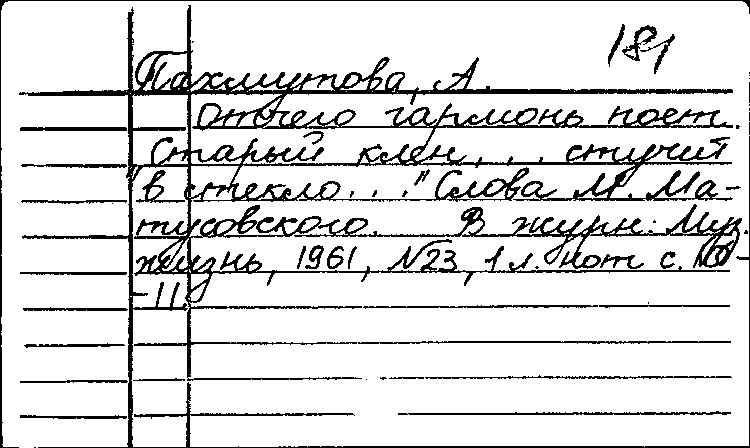 181
Пахмутова, А.
Отчего гармонь поет.
"Старый клен... стучит
в стекло..." Слова М. Ма-
тусовского. В журн: Муз.
жизнь, 1961, №23, 1 л. нот с. 10-
-11.